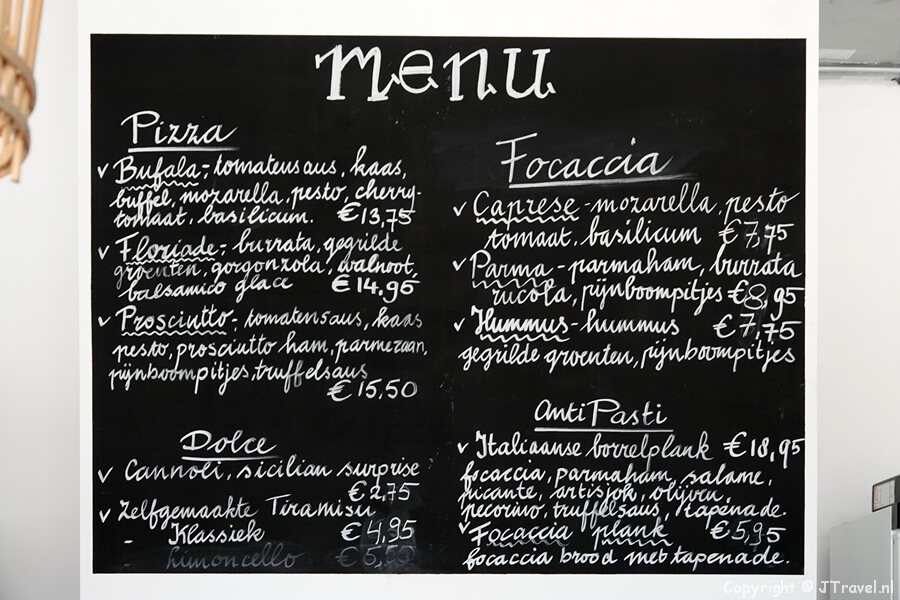 menu
Pizza
✓ Bufala - tomatensaus, kaas,
buffel, mozarella, pesto, cherry-
tomaat, basilicum. €13,75
✓ Floriade - burrata, gegrilde
groenten, gorgonzola, walnoot,
balsamico glace €14,95
✓ Prosciutto - tomatensaus, kaas
pesto, prosciutto ham, parmezaan,
pijnboompitjes, truffelsaus
€15,50
Dolce
✓ Cannoli, sicilian surprise
€2,75
✓ Zelfgemaakte Tiramisu
- Klassiek €4,95
- Limoncello €5,50
Focaccia
✓ Caprese - mozarella, pesto
tomaat, basilicum €7,75
✓ Parma - parmaham, burrata
rucola, pijnboompitjes €8,95
✓ Hummus - hummus €7,75
gegrilde groenten, pijnboompitjes
Anti Pasti
✓ Italiaanse borrelplank €18,95
focaccia, parmaham, salame,
picante, artisjok, olijven,
pecorino, truffelsaus, tapenade.
✓ Focaccia plank €5,95
focaccia brood met tapenade.
Copyright © JTravel.nl